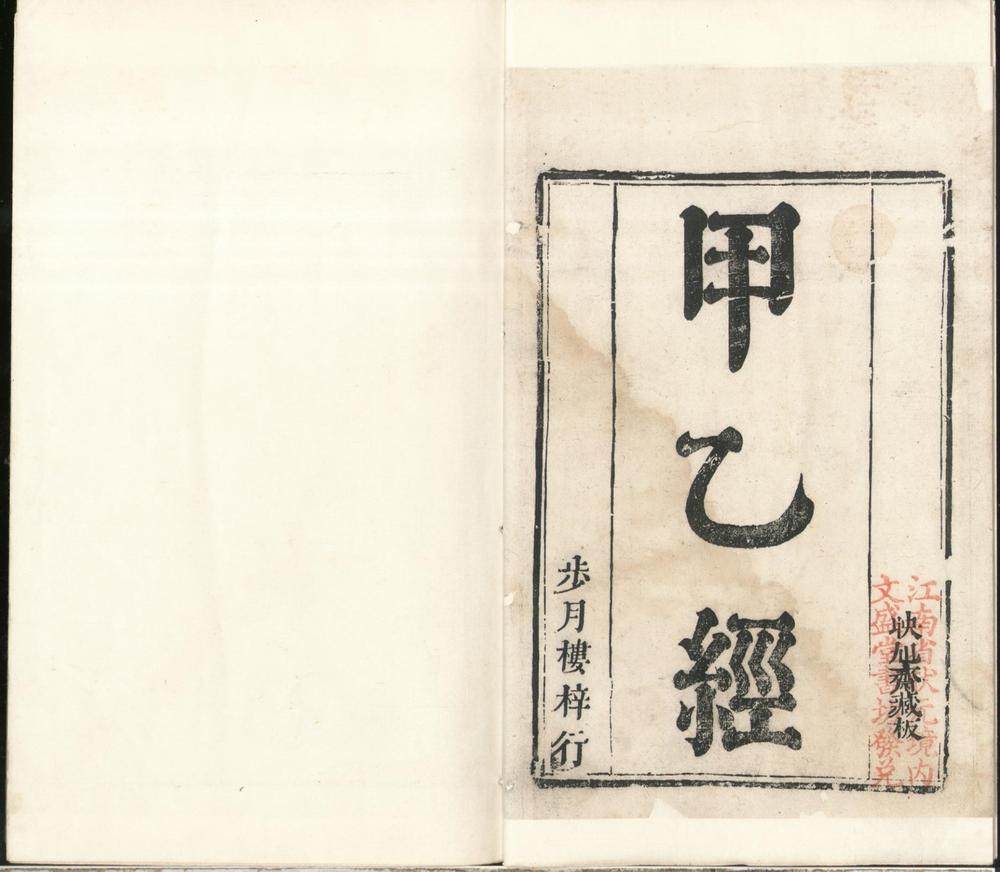 映旭齋藏板
江南省狀元境內
文盛堂書坊發兌
甲乙經
步月樓梓行